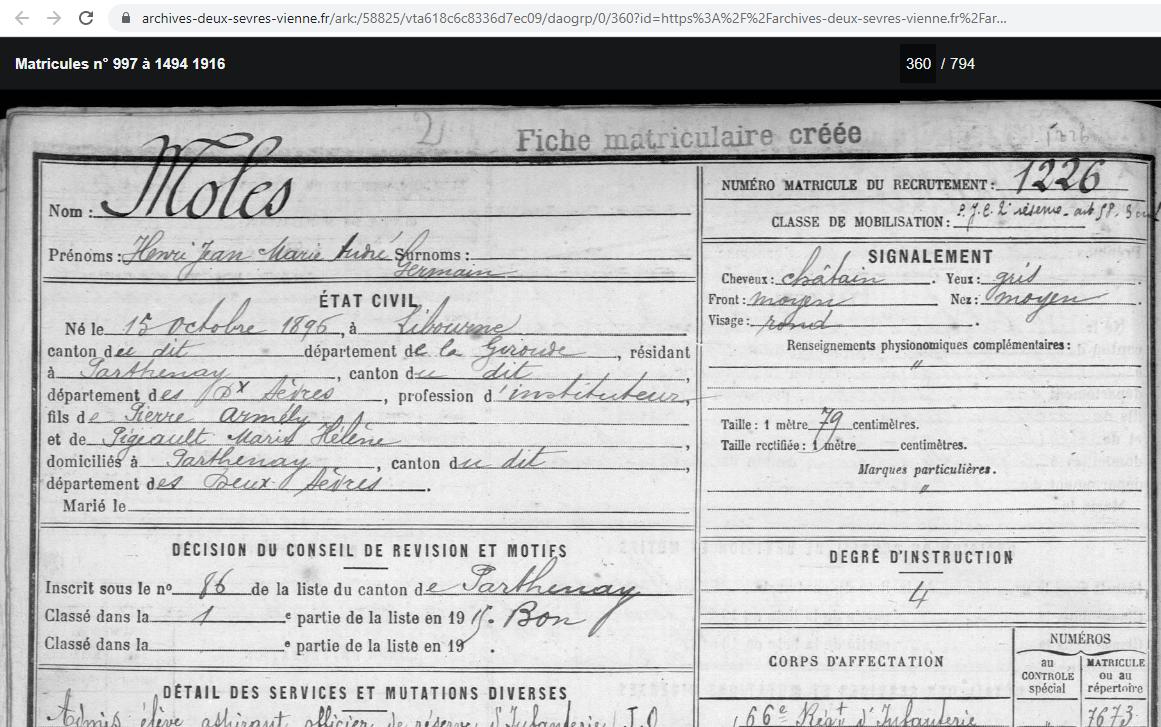 archives-deux-sevres-vienne.fr/ark:/58825/vta618c6c8336d7ec09/daogrp/0/360?id=https%3A%2F%2Farchives-deux-sevres-vienne.fr%2Far...
Matricules n° 997 à 1494 1916
360 / 794
2
Fiche matriculaire créée
1226
Nom : Moles
Prénoms : Henri Jean Marie André Surnoms :
Germain
ÉTAT CIVIL
Né le 15 octobre 1896, à Libourne
canton du dit département de la Gironde, résidant
à Parthenay, canton du dit,
département des Dx Sèvres, profession d'instituteur,
fils de Pierre Armély
et de Pigeault Marie Hélène,
domiciliés à Parthenay, canton du dit,
département des Deux Sèvres.
Marié le
DÉCISION DU CONSEIL DE REVISION ET MOTIFS
Inscrit sous le n° 86 de la liste du canton de Parthenay
Classé dans la 1 e partie de la liste en 1915. Bon
Classé dans la e partie de la liste en 19 .
DÉTAIL DES SERVICES ET MUTATIONS DIVERSES
Admis élève aspirant officier de réserve d'Infanterie, J.O
NUMÉRO MATRICULE DU RECRUTEMENT : 1226
CLASSE DE MOBILISATION : 2e réserve - art 58.
SIGNALEMENT
Cheveux : chatain. Yeux : gris.
Front : moyen Nez : moyen.
Visage : rond.
Renseignements physionomiques complémentaires :
"
Taille : 1 mètre 79 centimètres.
Taille rectifiée : 1 mètre centimètres.
Marques particulières.
"
DEGRÉ D'INSTRUCTION
4
CORPS D'AFFECTATION
NUMÉROS
au CONTROLE spécial
MATRICULE ou au répertoire
66e Régt d'Infanterie 7673